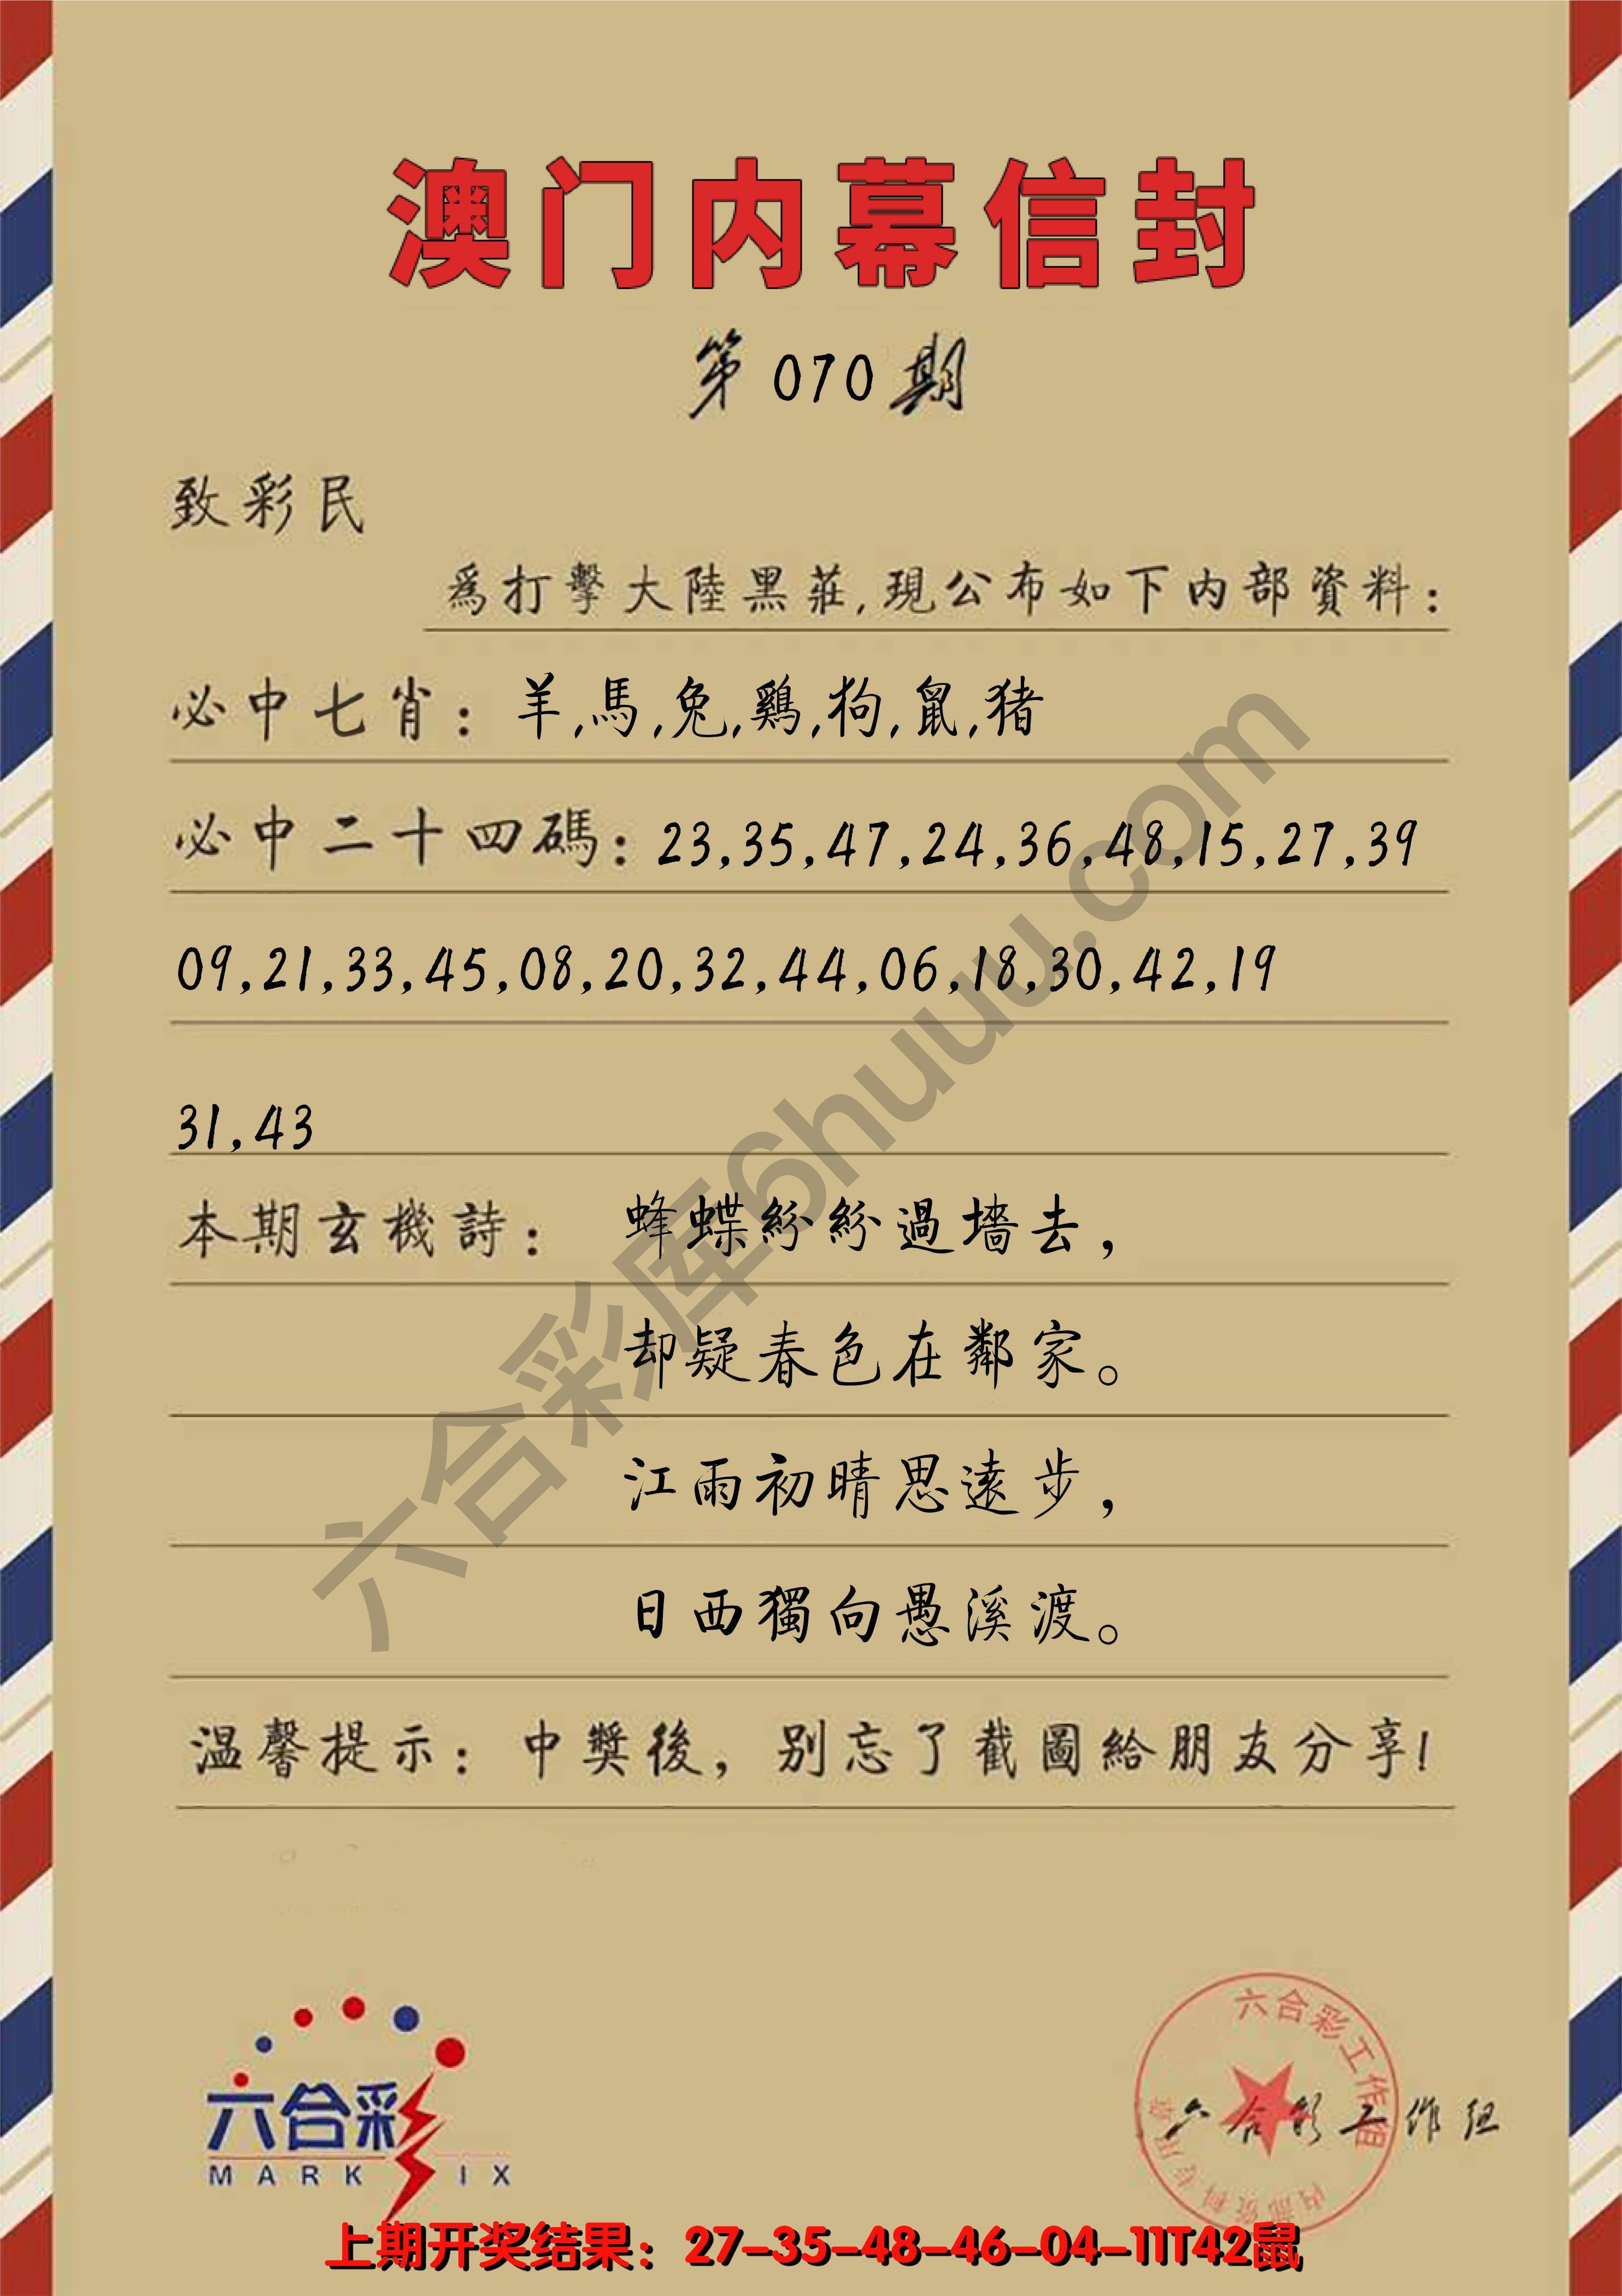 澳门内幕信封
第070期
致彩民
為打擊大陸黑莊,現公布如下内部資料:
必中七肖: 羊,馬,兔,鷄,狗,鼠,猪
必中二十四碼: 23,35,47,24,36,48,15,27,39
09,21,33,45,08,20,32,44,06,18,30,42,19
31,43
本期玄機詩: 蜂蝶紛紛過墻去,
却疑春色在鄰家。
江雨初晴思遠步,
日西獨向愚溪渡。
温馨提示: 中獎後, 别忘了截圖給朋友分享!
六合彩库6huuu.com
六合彩工作组
内部资料专用章
六合彩工作组
六合彩
MARK IX
上期开奖结果: 27-35-48-46-04-11T42鼠